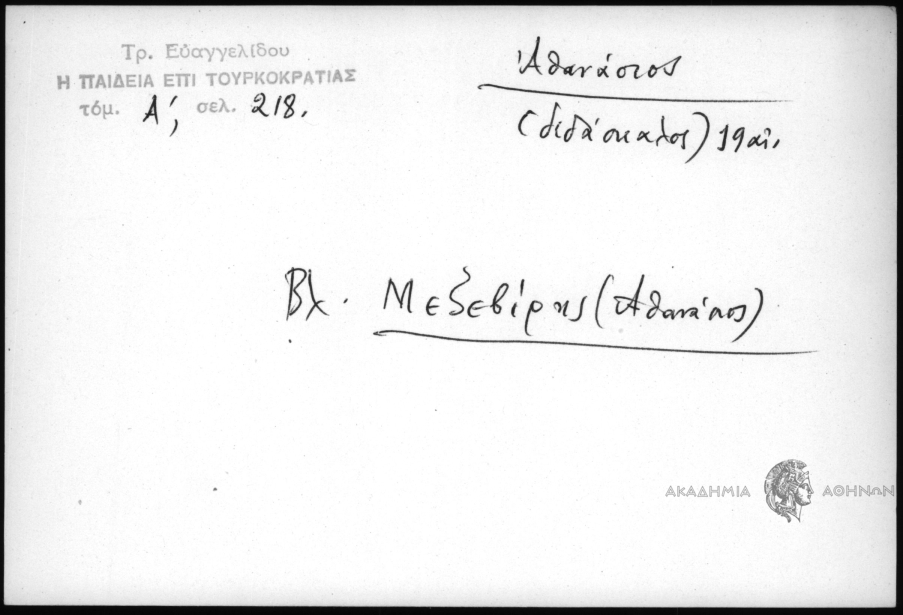 Τρ. Εὐαγγελίδου
Η ΠΑΙΔΕΙΑ ΕΠΙ ΤΟΥΡΚΟΚΡΑΤΙΑΣ
τόμ. Α΄, σελ. 218.
Ἀθανάσιος
(διδάσκαλος) 19 αἰ.
Βλ. Μεζεβίρης (Ἀθανάσιος)
ΑΚΑΔΗΜΙΑ ΑΘΗΝΩΝ